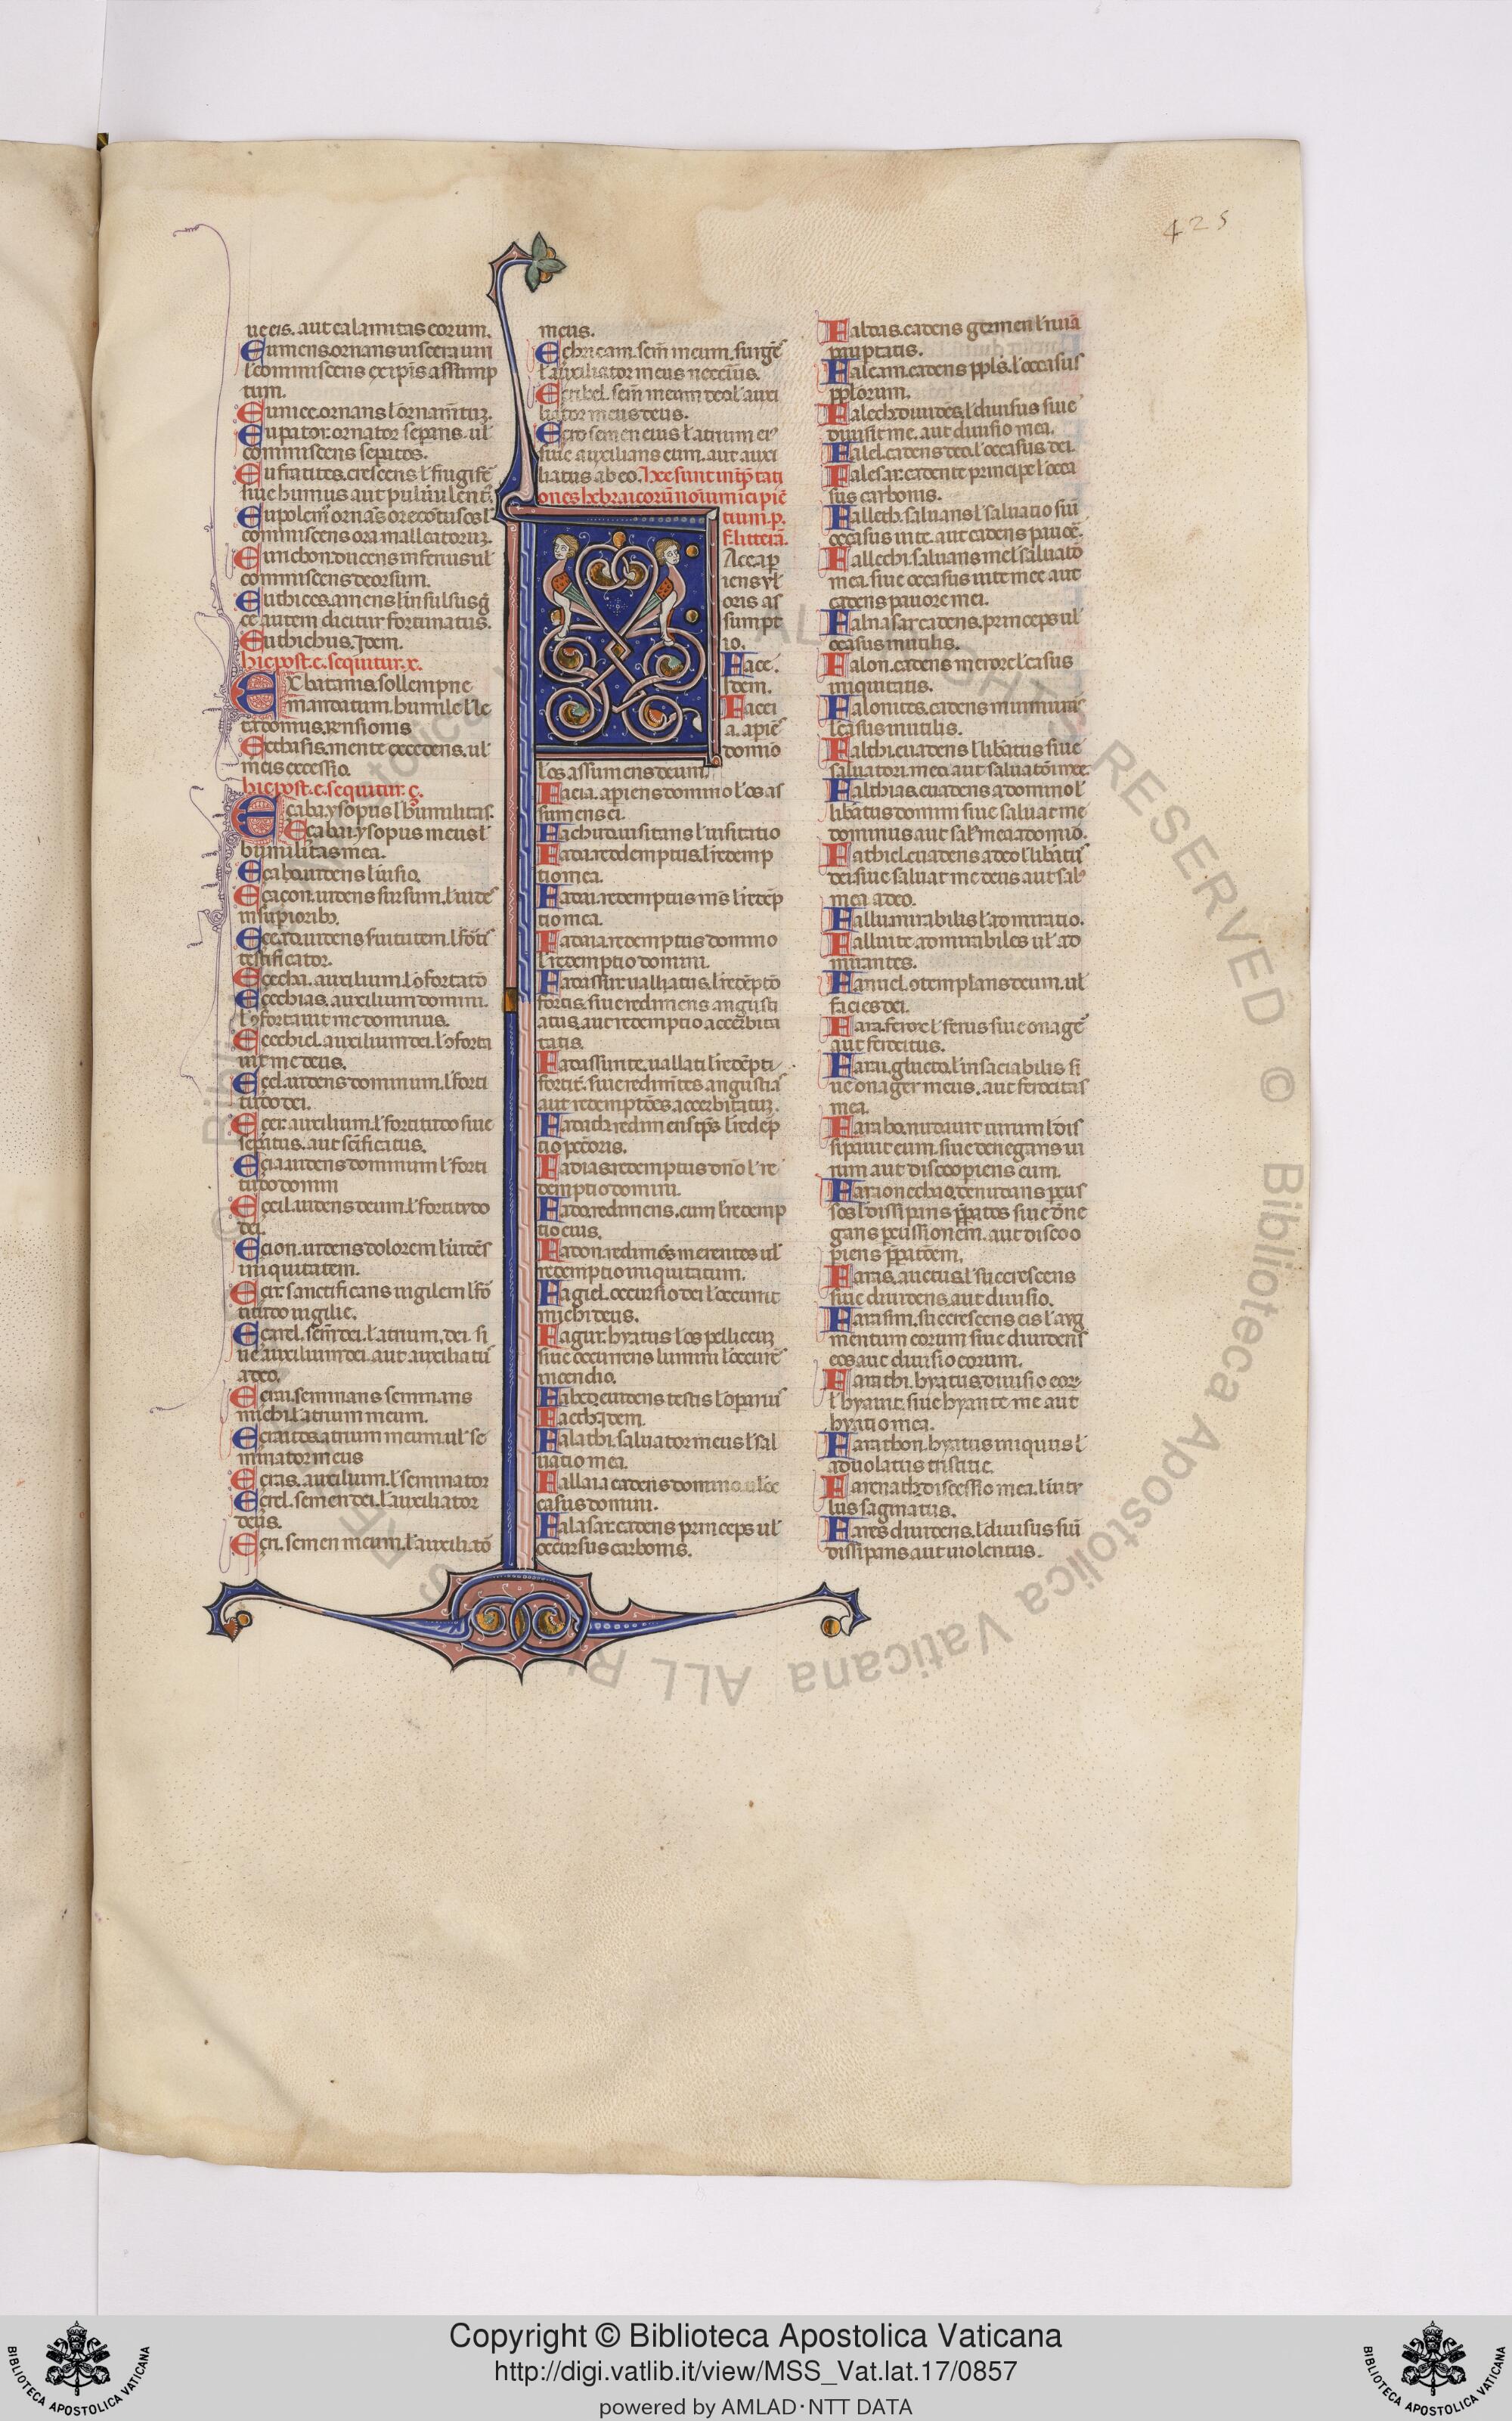 425
ue eis. aut calamitas eorum.
Eumens. ornans uiscera um
l' commiscens
tum.
Eunice. ornans l' ornam̄tuʒ.
Eupator. ornator sepans. ul'
commiscens sepatos.
Eufrattes. crescens l' frugifē
siue humus aut
Eupolem̄
commiscens ora malleatoruʒ.
ducens inferius ul'
commiscens deorsum.
Euthices. amens l' insulsus
ce autem dicitur fortunatus.
Euthichus. Idem.
hic post. e. sequitur. x.
Exbatanis. sollempne
mandatum. humile l' le
Ecthasis. mente excedens. ul'
mentis excessio.
hic post. e. sequitur. ç.
Eçaba. ysopus l' humilitas.
Eçabai. ysopus meus l'
humilitas mea.
uidens l' uisio.
uidens sursum. l' uidē
testificator.
auxilium. l' ꝯfortatō
Eçechias. auxilium domini.
l' ꝯfortauit me dominus.
Eçechiel. auxilium dei. l' ꝯforta
uit me deus.
Eçel. uidens dominum. l' forti
tudo dei.
Eçer. auxilium. l' fortitudo siue
sepatus. aut sc̄ificatus.
Eçia. uidens dominum l' forti
tudo domini
Eçeil. uidens deum. l' fortitudo
dei.
Eçion. uidens dolorem l' uidēs
iniquitatem.
Eçir. sanctificans uigilem l' fo
titudo uigilie.
sem̄ dei. l' atrium. dei. si
ue auxilium dei. aut auxiliatū
a deo.
seminans seminans
michi l' atrium meum.
Eçraites. atrium meum. ul' se
minator meus
Eçras. auxilium. l' seminator
Eçrel. semen dei. l' auxiliator
deus.
Eçri. semen meum. l' auxiliatō
meus.
Eçbricam. sem̄ meum. surgēs
l' auxiliator meus
sem̄ meum deo l' auxi
liator meus deus.
Eçro semen eius l' atrium ei'
siue auxilians eum. aut auxi
liatus ab eo. Hee sunt inṫp̄tati
ones hebraicorū noīum īcipiē
tium. p.
F. litterā.
Face ap
iens ul'
oris as
sumpt
io.
Face.
Idem.
Facei
a. apiēs
domino
l' os assumens deum.
Facia. apiens domino l' os as
sumens ei.
uisitans l' uisitatio
Fada. redemptus. l' redemp
tio mea.
Fadai. redemptus m̄s l' redēp
tio mea.
Fadaia. redemptus domino
l' redemptio domini.
Fadassur. uallatus. l' redēptō
fortis. siue redimens angusti
atus. aut redemptio
tatis.
Fadassunte. uallati l' redēpti
fortit̄. siue redimētes angustias
aut redemptōes acerbitatuʒ.
tio pectoris.
Fadias. redemptus dn̄o l' re
demptio domini.
Fado. redimens. eum l' redemp
tio eius.
Fadon. redimēs merentes ul'
redemptio iniquitatum.
Fagiel. occursio dei l' occurrit
michi deus.
Fagur. hyatus l' os pelliceuʒ
siue occurrens lumini l' occurēs
incendio.
testis l' opanū
Idem.
Falathi. saluator meus l' sal
uatio mea.
Fallaia cadens domino. ul' oc
casus domini.
Falasar. cadens princeps ul'
occursus carbonis.
Faldas. cadens germen l' ruīa
paup̄tatis.
Faleam. cadens pp̄ls. l' occasus
pp̄lorum.
Falech. diuidēs. l' diuisus siue
diuisit me. aut diuisio mea.
Falel. cadens deo. l' occasus dei.
Falesar. cadente principe l' occa
sus carbonis.
Fallech. saluans l' saluatio siū
occasus uite. aut cadens
Fallechi. saluans me l' saluatō
mea. siue occasus uite mee aut
cadens pauore mei.
Falnasar cadens. princeps ul'
occasus inutilis.
Falon. cadens merore l' casus
iniquitatis.
Falonites. cadens
l' casus inutilis.
Falthi. euadens l' lib̄atus siue
saluatori meo. aut saluatōi mee.
Falthias. euadens a domino l'
lib̄atus domini siue saluat me
dominus aut sal' mea a domīo.
Falthiel. euadens a deo l' lib̄atus
dei siue saluat me deus aut sal'
mea a deo.
Fallu. mirabilis l' admiratio.
Falluite. admirabiles ul' ad
mirantes.
Fanuel. ꝯtemplans deum. ul'
facies dei.
Fara. feroce l' ferus siue onager
aut ferocitus.
insaciabilis si
ue onager meus. aut ferocitas
mea.
unum l' dis
sipauit eum. siue denegans ui
rum aut discoopiens eum.
sos l' dissipans siue dene
gans pcussionem. aut discoo
piens
Faras. auctus l' succrescens
siue diuidens. aut diuisio.
Farasim. succrescens eis l' aug
mentum eorum siue diuidens
eos aut diuisio eorum.
Farathi. hyatus. diuisio eorʒ
l' hyauit. siue hyante me aut
hyatio mea.
Farathon. hyatus iniquus l'
aduolatus tristitie.
Farenach. discessio mea. l' uitu
lus saginatus.
Fares diuidens. l' diuisus siū
dissipans aut uiolentus.
© Biblioteca Apostolica Vaticana ALL RIGHTS RESERVED
Copyright © Biblioteca Apostolica Vaticana
http://digi.vatlib.it/view/MSS_Vat.lat.17/0857
powered by AMLAD·NTT DATA
BIBLIOTECA APOSTOLICA VATICANA
BIBLIOTECA APOSTOLICA VATICANA